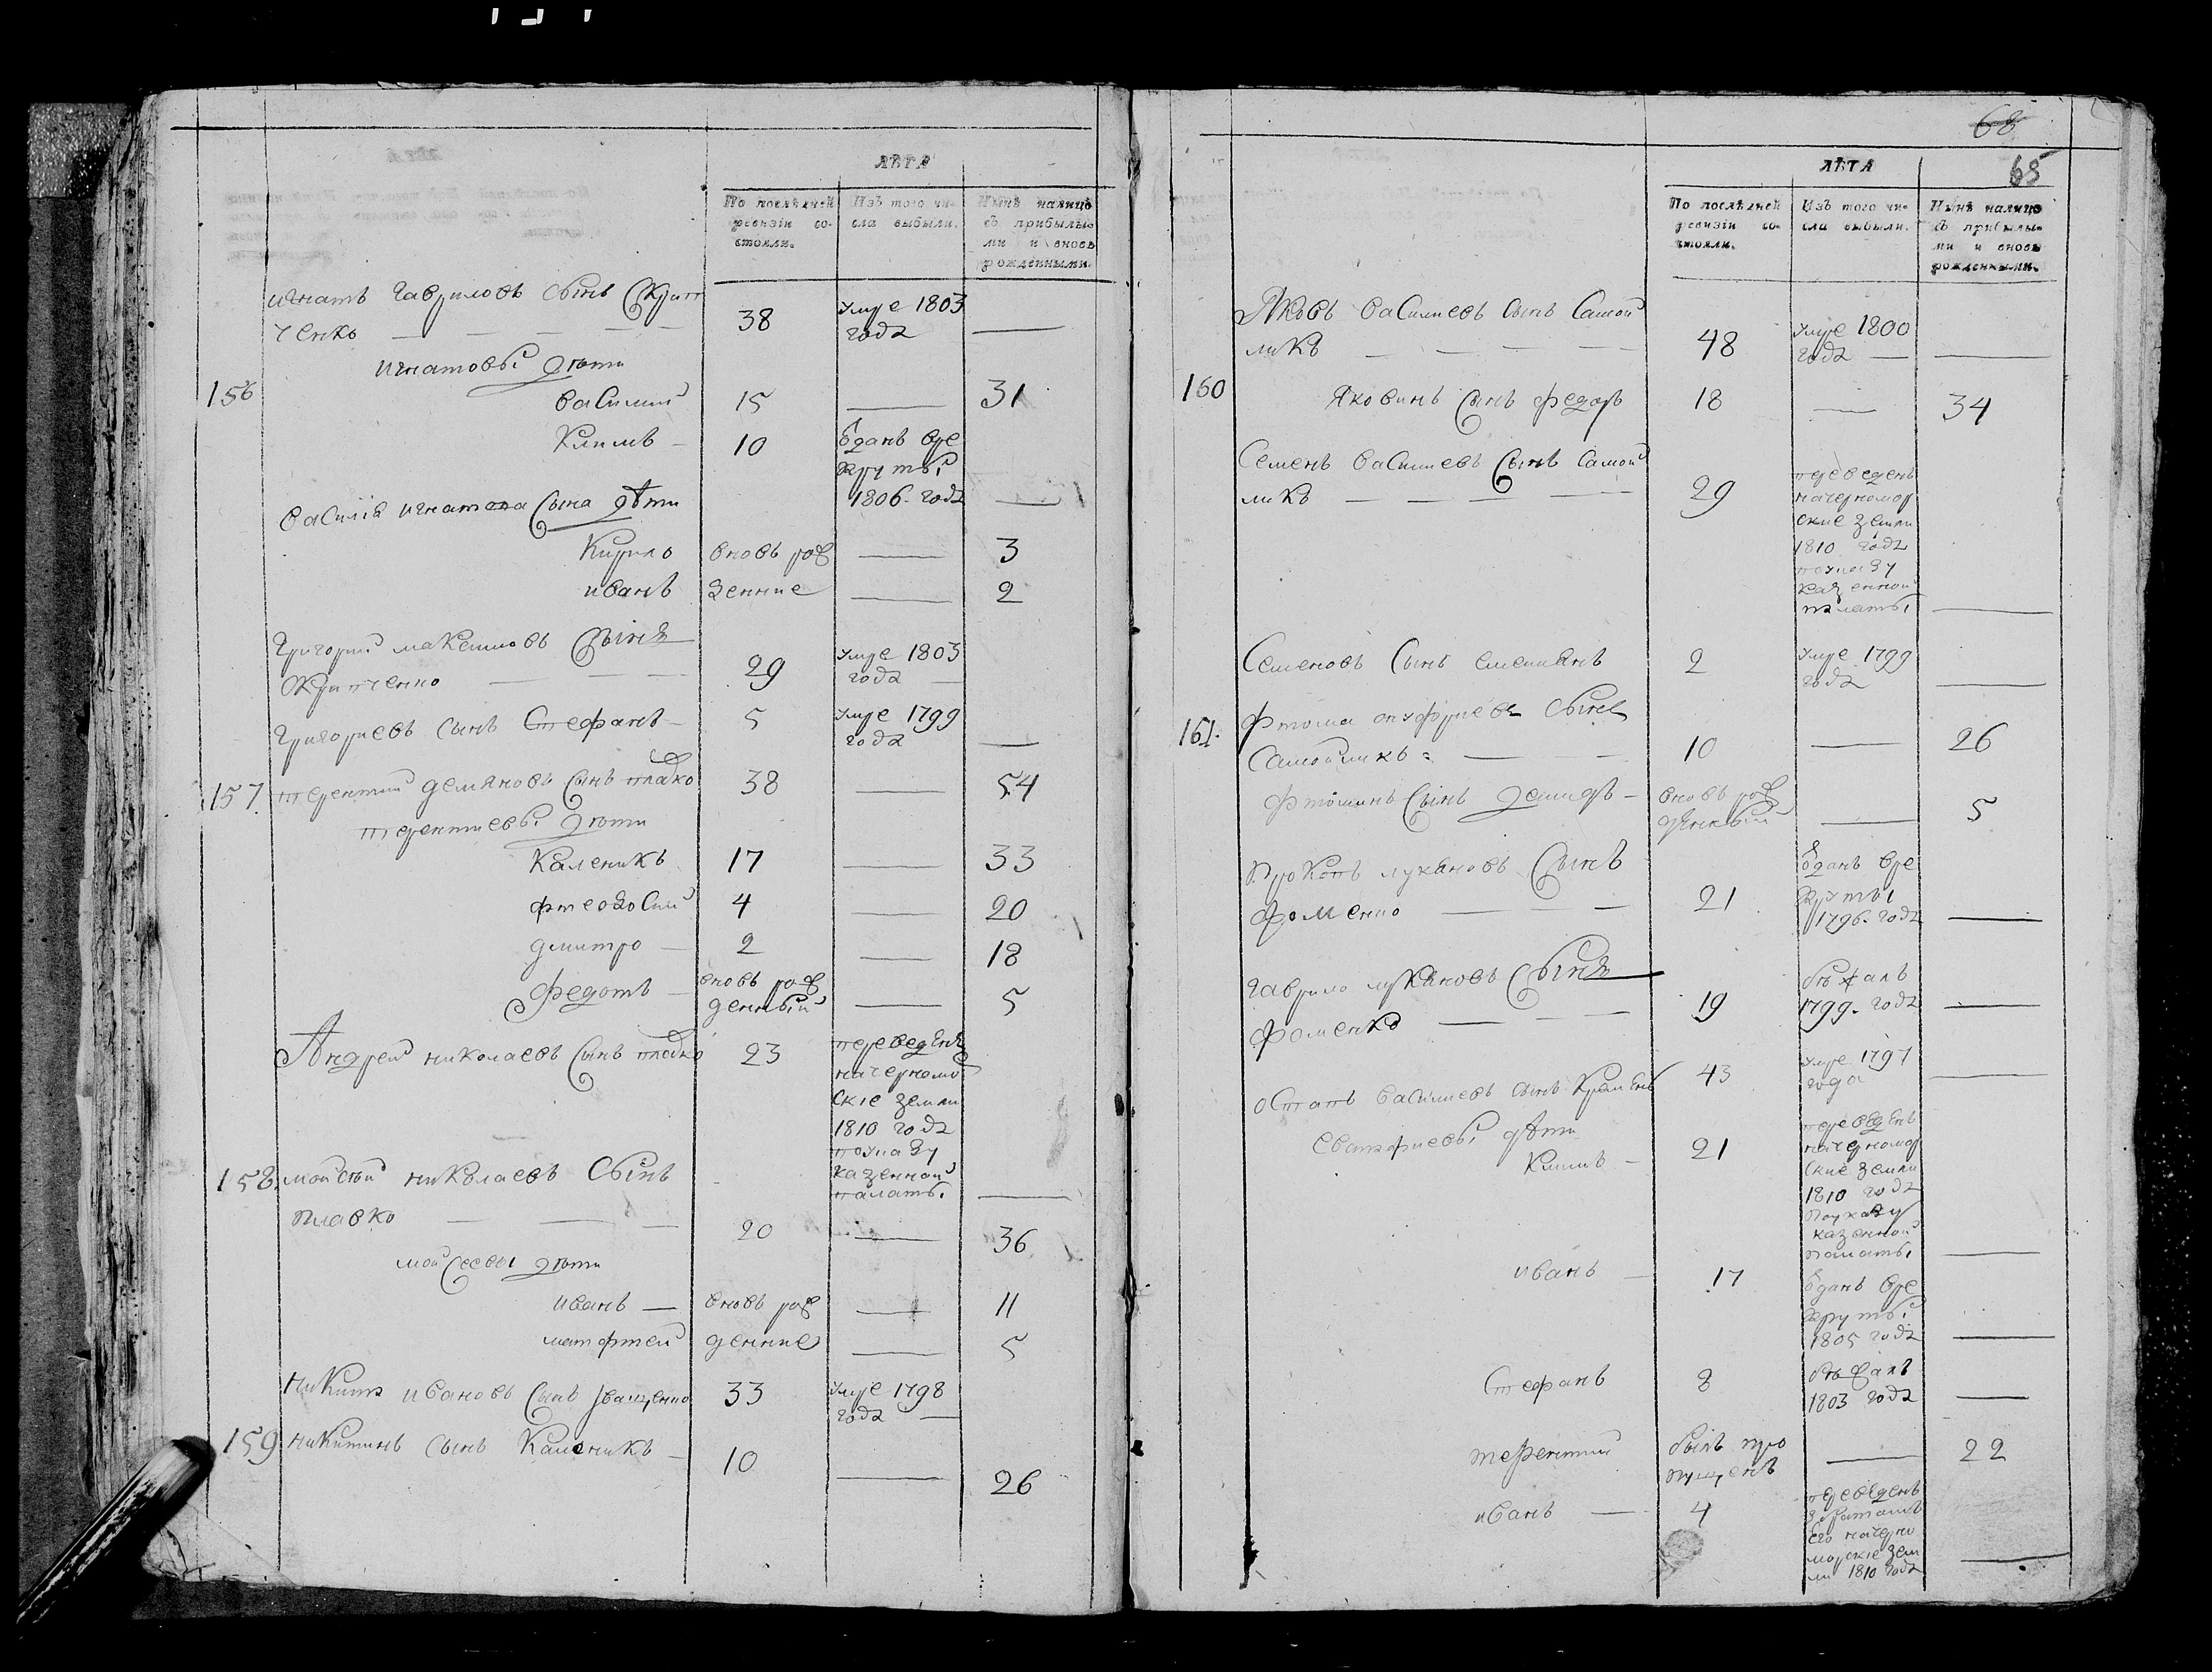 ЛѢТА
По послѣдней Изъ того чи- Нынѣ налицо
ревизіи со- сла выбыли. съ прибылы-
стояли. ми и вновь
рожденными.
Игнатъ Гавриловъ сынъ Скрип
ченко 38 умре 1803
года
Игнатовы дѣти
156 Василий 15 31
Климъ 10 Ѿданъ вре
круты
1806. года
Василія Игнатова сына дѣти
Кирило вновь рож 3
Иванъ денние 2
Григорий Максимовъ сынъ
Скрипченко 29 умре 1803
года
Григориевъ сынъ Стефанъ 5 умре 1799
года
157 Терентий Демяновъ сынъ Плавко 38 54
Терентиевы дѣти
Каленикъ 17 33
Фтеодосий 4 20
Дмитро 2 18
Федотъ вновь рож
денный 5
Андрей Николаевъ сынъ Плавко 23 переведенъ
начерномо
ские земли
1810 года
поуказу
казенной
палаты
158. Мойсѣй Николаевъ сынъ
Плавко 20 36
Мойсеевы дѣти
Иванъ вновь рож 11
Матфтей денние 5
Никита Ивановъ сынъ Иващенко 33 умре 1798
года
159 Никитинъ сынъ Каленикъ 10 26
68
65
ЛѢТА
По послѣдней Изъ того чи- Нынѣ налицо
ревизіи со- сла выбыли. съ прибылы-
стояли. ми и вновь
рожденными.
Яковъ Василиевъ сынъ Самой
ликъ 48 умре 1800
года
160 Яковинъ сынъ Федоръ 18 34
Семенъ Василиевъ сынъ Самой
ликъ 29 переведенъ
начерномор
ские земли
1810 года
поуказу
казенной
палаты
Семеновъ сынъ Емелиянъ 2 умре 1799
года
161. Фтома Онуфриевъ сынъ
Самойликъ 10 26
Фтоминъ сынъ Демидъ вновь рож
денный 5
Прокопъ Лукяновъ сынъ
Фоменко 21 Ѿданъ вре
круты
1796. года
Гаврило Лукяновъ сынъ
Фоменко 19 бѣжалъ
1799. года
Остапъ Василиевъ сынъ 43 умре 1797
года
Евстафиевы дѣти
Климъ 21 переведенъ
начерномор
ские земли
1810 года
поуказу
казенной
палаты
Иванъ 17 Ѿданъ вре
круты
1805 года
Стефанъ 8 бѣжалъ
1803 года
Терентий былъ про
пущенъ 22
Иванъ 4 переведенъ
збратомъ
его начерно
морские зем
ли 1810 года